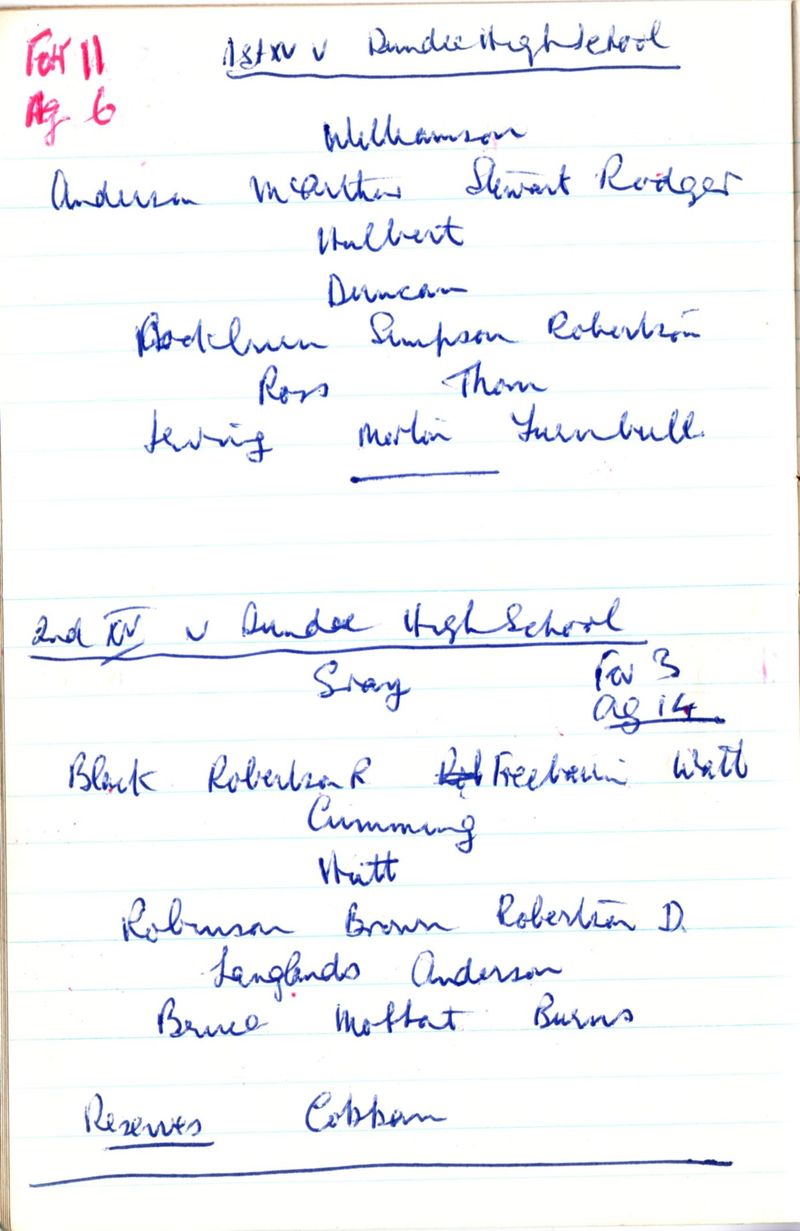 For 11
Ag 6
1st XV v Dundee High School
Williamson
Anderson McArthur Stewart Rodger
Hulbert
Duncan
Simpson Robertson
Ross Thom
Irving Martin Turnbull
2nd XV v Dundee High School
Gray
For 3
Ag 14
Black Robertson R Freebairn Watt
Cumming
Hutt
Robinson Brown Robertson D.
Langlands Anderson
Bruce Moffat Burns
Reserves Cobban